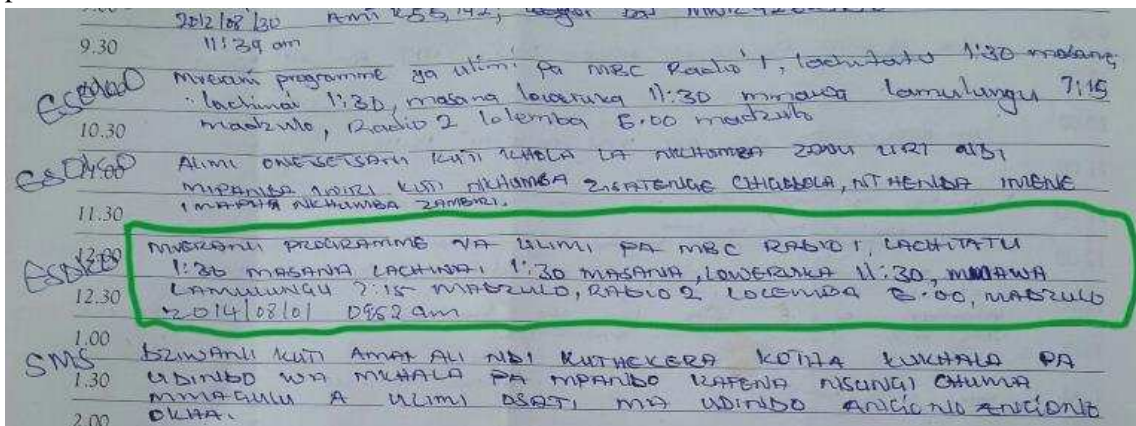 2012/08/30 Ami
9.30 11:39 am
Mverani programme ya ulimi pa MBC Radio 1, lachitatu 1:30 masana,
ESOKO lachinai 1:30, masana loweruka 11:30 mmawa lamulungu 7:15
10.30 madzulo, Radio 2 lolemba 6.00 madzulo
ESOKO ALIMI ONETSETSANI KUTI KHOLA LA NKHUMBA ZANU LIRI
MIPANDA IWIRI KUTI NKHUMBA ZISATENGE CHIGODOLA, NTHENDA IMENE
11.30 IMAPHA NKHUMBA ZAMBIRI.
MVERANI PROGRAMME YA ULIMI PA MBC RADIO 1, LACHITATU
ESOKO 1:30 MASANA LACHINAI 1:30 MASANA, LOWERUKA 11:30, MMAWA
12.30 LAMULUNGU 7:15 MADZULO, RADIO 2 LOLEMBA 6:00, MADZULO
2014/08/01 0952 am
1.00
SMS DZIWANI KUTI AMAI ALI NDI KUTHEKERA KOTHA KUKHALA PA
1.30 UDINDO WA MKHALA PA MPANDO KAPENA MSUNGI CHUMA
MMAGULU A ULIMI OSATI MA UDINDO ANG'ONO ANG'ONO
2.00 OKHA.